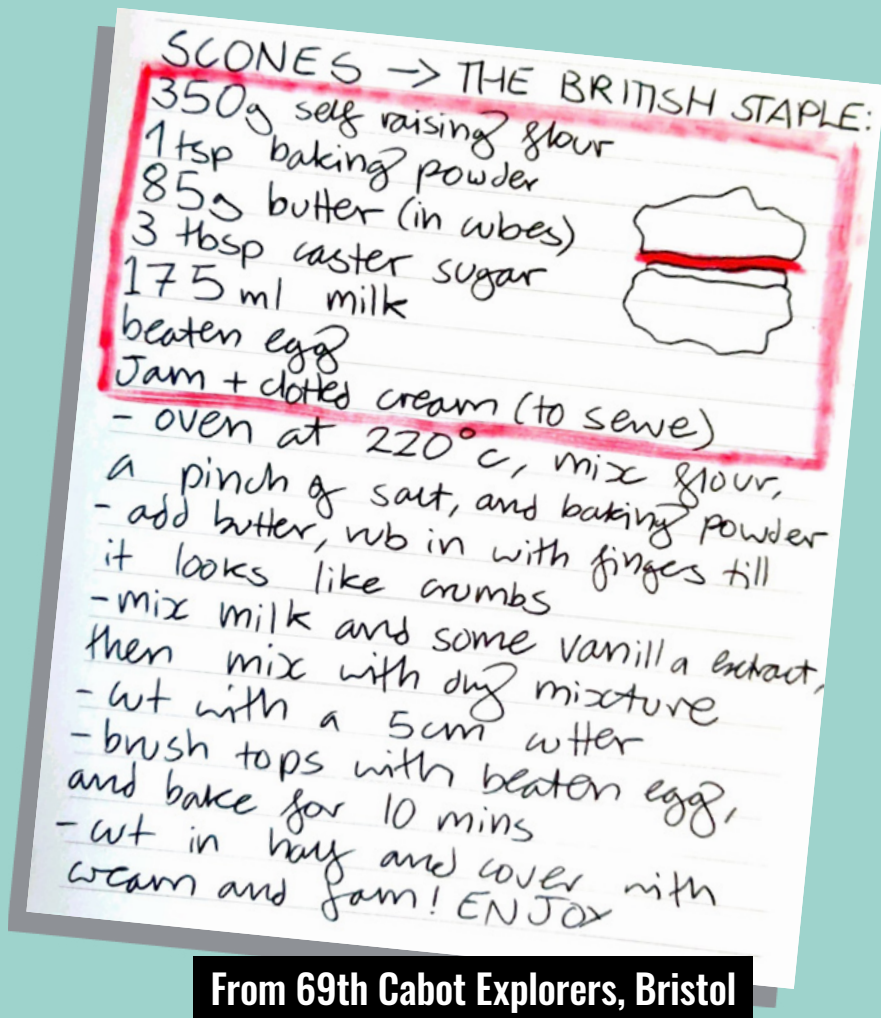 SCONES → THE BRITISH STAPLE:
350g self raising flour
1 tsp baking powder
85g butter (in cubes)
3 tbsp caster sugar
175 ml milk
beaten egg
Jam + clotted cream (to serve)
- oven at 220°c, mix flour,
a pinch of salt, and baking powder
- add butter, rub in with finges till
it looks like crumbs
- mix milk and some vanilla extract,
then mix with dry mixture
- cut with a 5cm cutter
- brush tops with beaten egg,
and bake for 10 mins
- cut in half and cover with
cream and jam! ENJOY
From 69th Cabot Explorers, Bristol